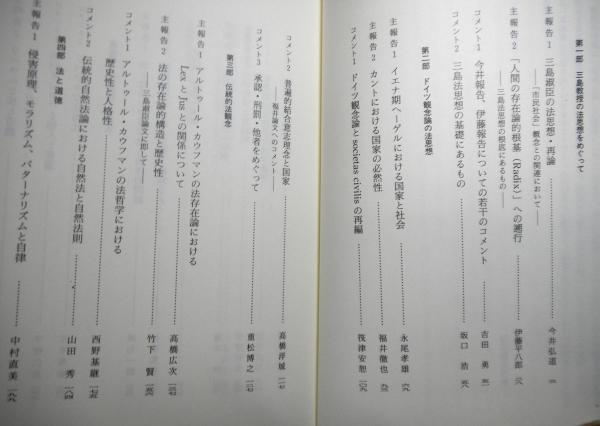 第一部 三島教授の法思想をめぐって
主報告1 三島淑臣の法思想・再論 今井弘道
――「市民社会」観念との関連において――
主報告2 「人間の存在論的根基（Radix）」への遡行 伊藤平八郎
――三島法思想の根底にあるもの――
コメント1 今井報告、伊藤報告についての若干のコメント 吉田勇
コメント2 三島法思想の基礎にあるもの 坂口浩
第二部 ドイツ観念論の法思想
主報告1 イエナ期ヘーゲルにおける国家と社会 永尾孝雄
主報告2 カントにおける国家の必然性 福井徹也
コメント1 ドイツ観念論と societas civilis の再編 筏津安恕
コメント2 普遍的結合意志理念と国家 高橋洋城
――福井論文へのコメント――
コメント3 承認・刑罰・他者をめぐって 重松博之
第三部 伝統的法観念
主報告1 アルトゥール・カウフマンの法存在論における
Lex と Jus との関係について 高橋広次
主報告2 法の存在論的構造と歴史性 竹下賢
――三島淑臣論文に即して――
コメント1 アルトゥール・カウフマンの法哲学における
歴史性と人格性 西野基継
コメント2 伝統的自然法論における自然法と自然法則 山田秀
第四部 法と道徳
主報告1 侵害原理、モラリズム、パターナリズムと自律 中村直美